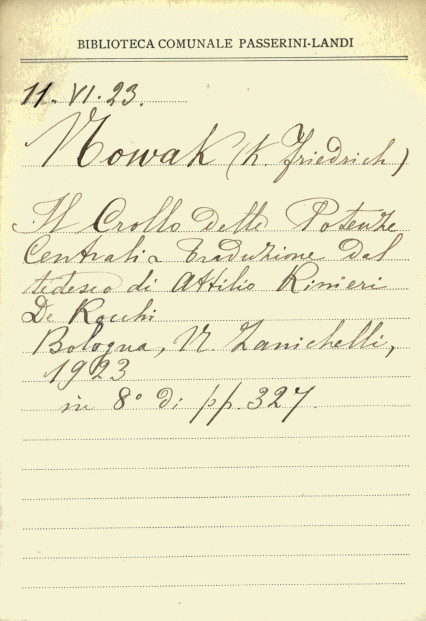 BIBLIOTECA COMUNALE PASSERINI-LANDI
11. VI. 23.
Nowak (K. Friedrich)
Il Crollo delle Potenze
Centrali - Traduzione dal
tedesco di Attilio Rinieri
De Rocchi
Bologna, N Zanichelli,
1923
in 8° di pp. 327.